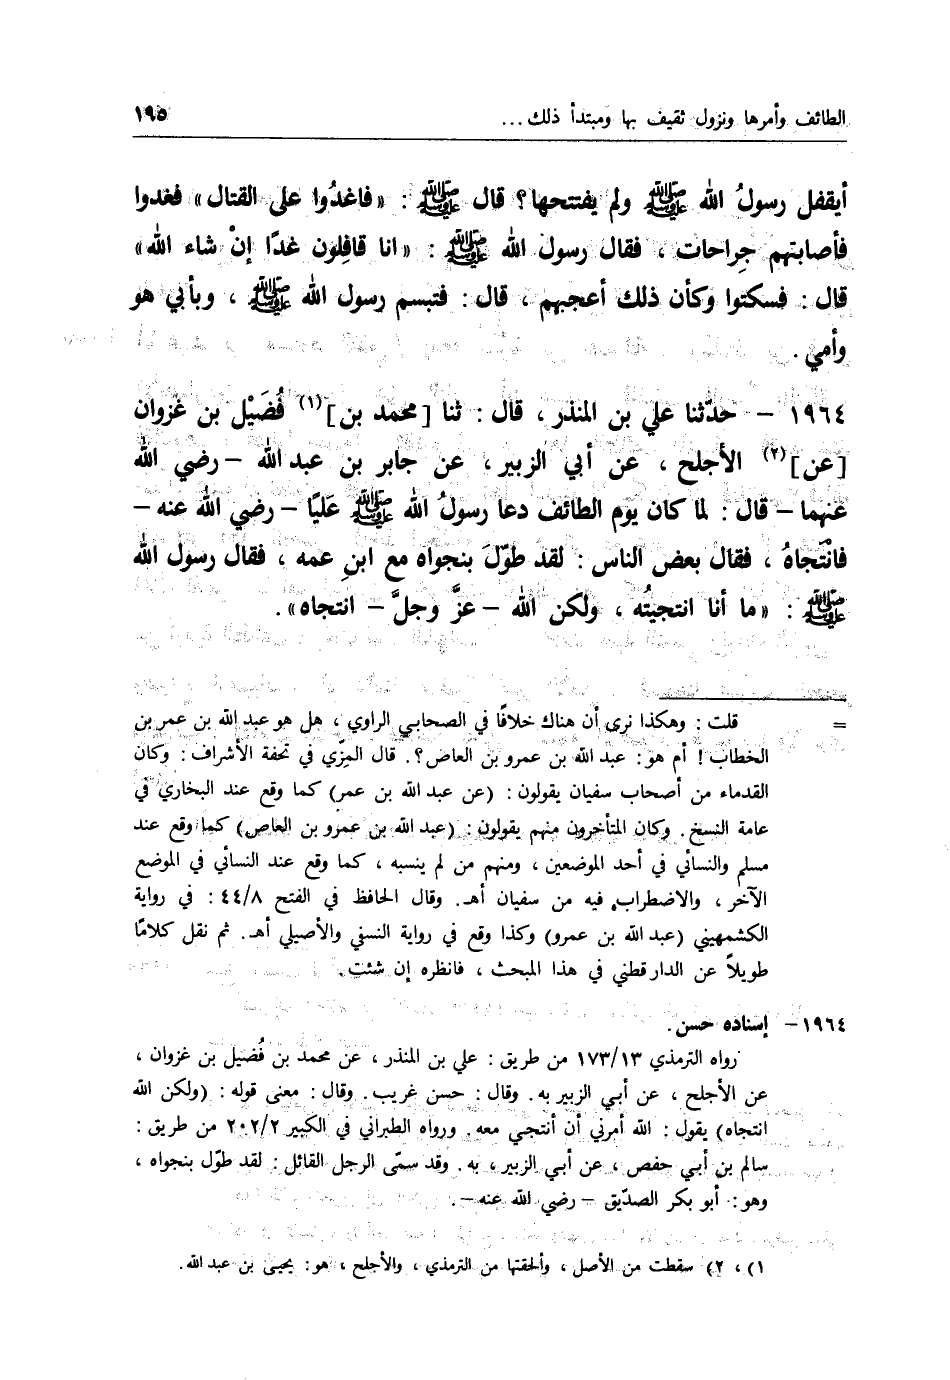 الطائف وأمرها ونزول ثقيف بها ومبتدأ ذلك ... ١٩٥
أيقفل رسولُ الله ﷺ ولم يفتتحها؟ قال ﷺ : «فاغدُوا على القتال» فغدوا
فأصابتهم جِراحات ، فقال رسول الله ﷺ : «انا قافِلون غدًا إنْ شاء الله»
قال : فسكتوا وكأن ذلك أعجبهم ، قال : فتبسم رسول الله ﷺ ، وبأبي هو
وأمي .
١٩٦٤ - حدّثنا علي بن المنذر ، قال : ثنا [محمد بن](١) فُضَيْل بن غزوان
[عن](٢) الأجلح ، عن أبي الزبير ، عن جابر بن عبد الله - رضي الله
عنهما - قال : لما كان يوم الطائف دعا رسولُ الله ﷺ عَليًا - رضي الله عنه -
فانْتجاهُ ، فقال بعض الناس : لقد طوّلَ بنجواه مع ابنِ عمه ، فقال رسول الله
ﷺ : «ما أنا انتجيتُه ، ولكن الله - عزَّ وجلَّ - انتجاه».
= قلت : وهكذا نرى أن هناك خلافًا في الصحابي الراوي ، هل هو عبد الله بن عمر بن
الخطاب ! أم هو: عبد الله بن عمرو بن العاص ؟. قال المِزّي في تحفة الأشراف : وكان
القدماء من أصحاب سفيان يقولون : (عن عبد الله بن عمر) كما وقع عند البخاري في
عامة النسخ. وكان المتأخرون منهم يقولون : (عبد الله بن عمرو بن العاص) كما وقع عند
مسلم والنسائي في أحد الموضعين ، ومنهم من لم ينسبه ، كما وقع عند النسائي في الموضع
الآخر ، والاضطراب فيه من سفيان أهـ. وقال الحافظ في الفتح ٤٤/٨ : في رواية
الكشمهيني (عبد الله بن عمرو) وكذا وقع في رواية النسفي والأصيلي أهـ. ثم نقل كلامًا
طويلاً عن الدارقطني في هذا المبحث ، فانظره إن شئت.
١٩٦٤ - إسناده حسن.
رواه الترمذي ١٧٣/١٣ من طريق : علي بن المنذر ، عن محمد بن فُضيل بن غزوان ،
عن الأجلح ، عن أبي الزبير به. وقال : حسن غريب. وقال: معنى قوله : (ولكن الله
انتجاه) يقول : الله أمرني أن أنتجي معه. ورواه الطبراني في الكبير ٢٠٢/٢ من طريق :
سالم بن أبي حفص ، عن أبي الزبير ، به. وقد سمّى الرجل القائل : لقد طوّل بنجواه ،
وهو: أبو بكر الصدّيق - رضي الله عنه -.
١) ، ٢) سقطت من الأصل ، وألحقتها من الترمذي ، والأجلح ، هو: يحيى بن عبد الله.